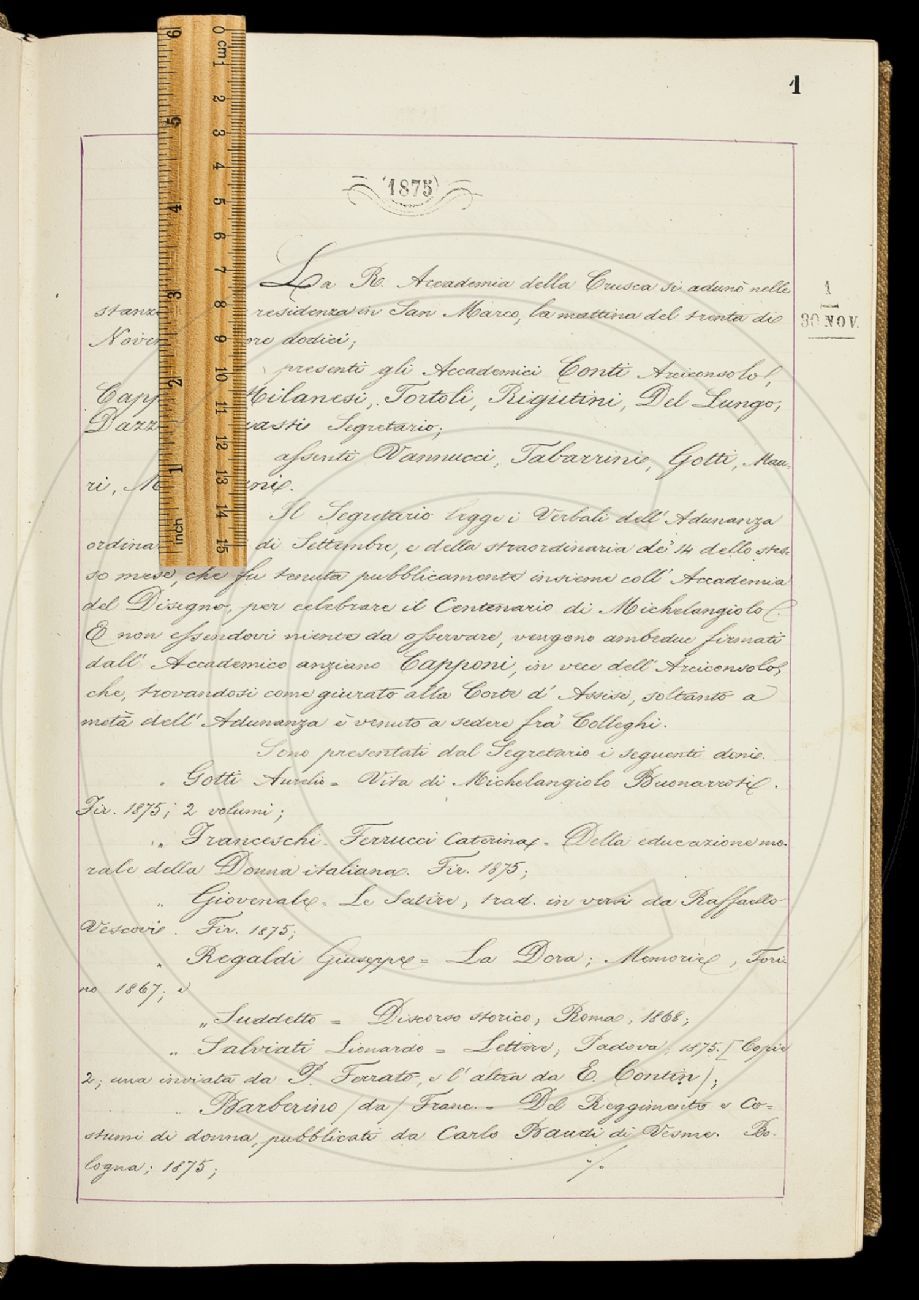 1
1875
La R. Accademia della Crusca si adunò nelle
stanz residenza in San Marco, la mattina del trenta di
Nove ore dodici;
1
30 NOV.
presenti gli Accademici Conti Arciconsolo,
Capp Milanesi, Tortoli, Rigutini, Del Lungo,
Dazz uasti Segretario;
assenti Vannucci, Tabarrini, Gotti, Mau-
ri, M ini.
Il Segretario legge i Verbali dell'Adunanza
ordina di Settembre, e della straordinaria de' 14 dello stes-
so mese, che fu tenuta pubblicamente insieme coll'Accademia
del Disegno, per celebrare il Centenario di Michelangiolo.
E non essendovi niente da osservare, vengono ambedue firmati
dall'Accademico anziano Capponi, in vece dell'Arciconsolo,
che, trovandosi come giurato alla Corte d'Assise, soltanto a
metà dell'Adunanza è venuto a sedere fra' Colleghi.
Sono presentati dal Segretario i seguenti doni.
„ Gotti Aurelio = Vita di Michelangiolo Buonarroti.
Fir. 1875; 2 volumi;
„ Franceschi-Ferrucci Caterina = Della educazione mo-
rale della Donna italiana. Fir. 1875;
„ Giovenale = Le Satire, trad. in versi da Raffaello
Vescovi. Fir. 1875;
„ Regaldi Giuseppe = La Dora; Memorie, Tori-
no 1867; e
„ Suddetto = Discorso storico, Roma, 1868;
„ Salviati Lionardo = Lettere; Padova, 1875. [Copie
2; una inviata da P. Ferrato, e l'altra da E. Contin);
„ Barberino (da) Franc. = Del Reggimento e Co=
stumi di donna, pubblicati da Carlo Baudi di Vesme. Bo-
logna; 1875;
./.
0 cm 1 2 3 4 5 6 7 8 9 10 11 12 13 14 15
inch 1 2 3 4 5 6